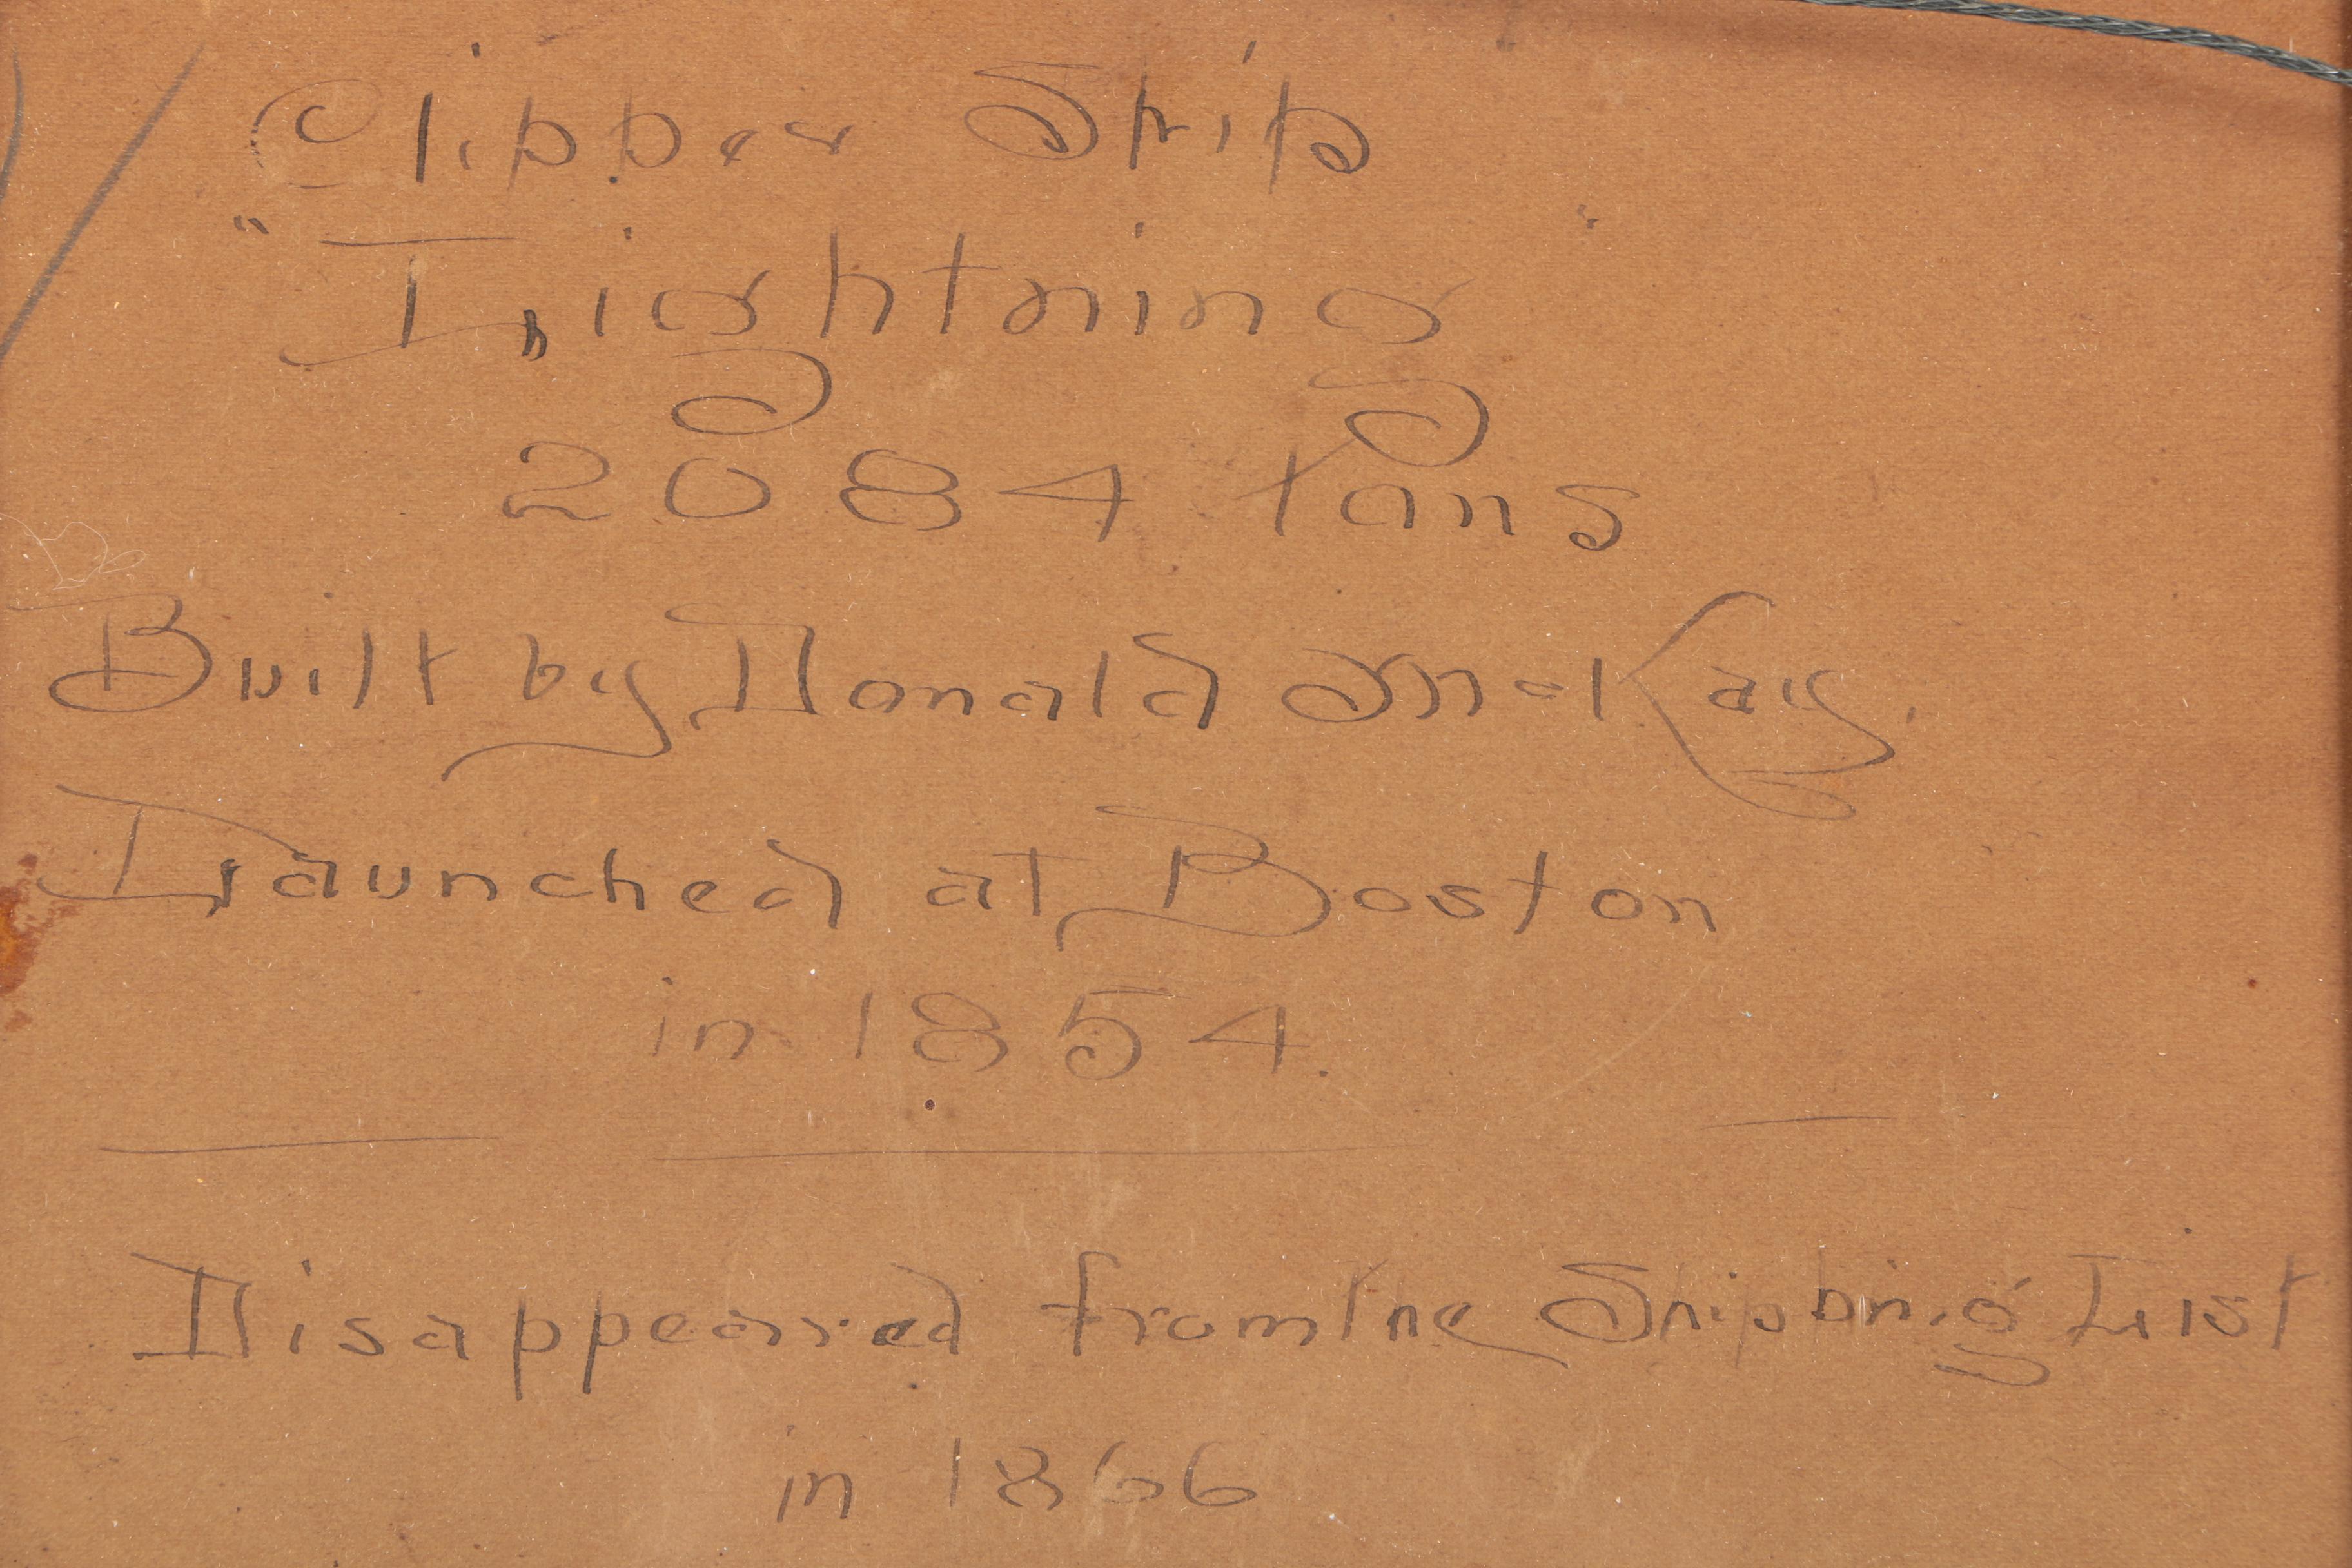 Clipper Ship
"Lightning"
2084 tons
Built by Donald McKay.
Launched at Boston
in 1854.
Disappeared from the Shipping List
in 1866